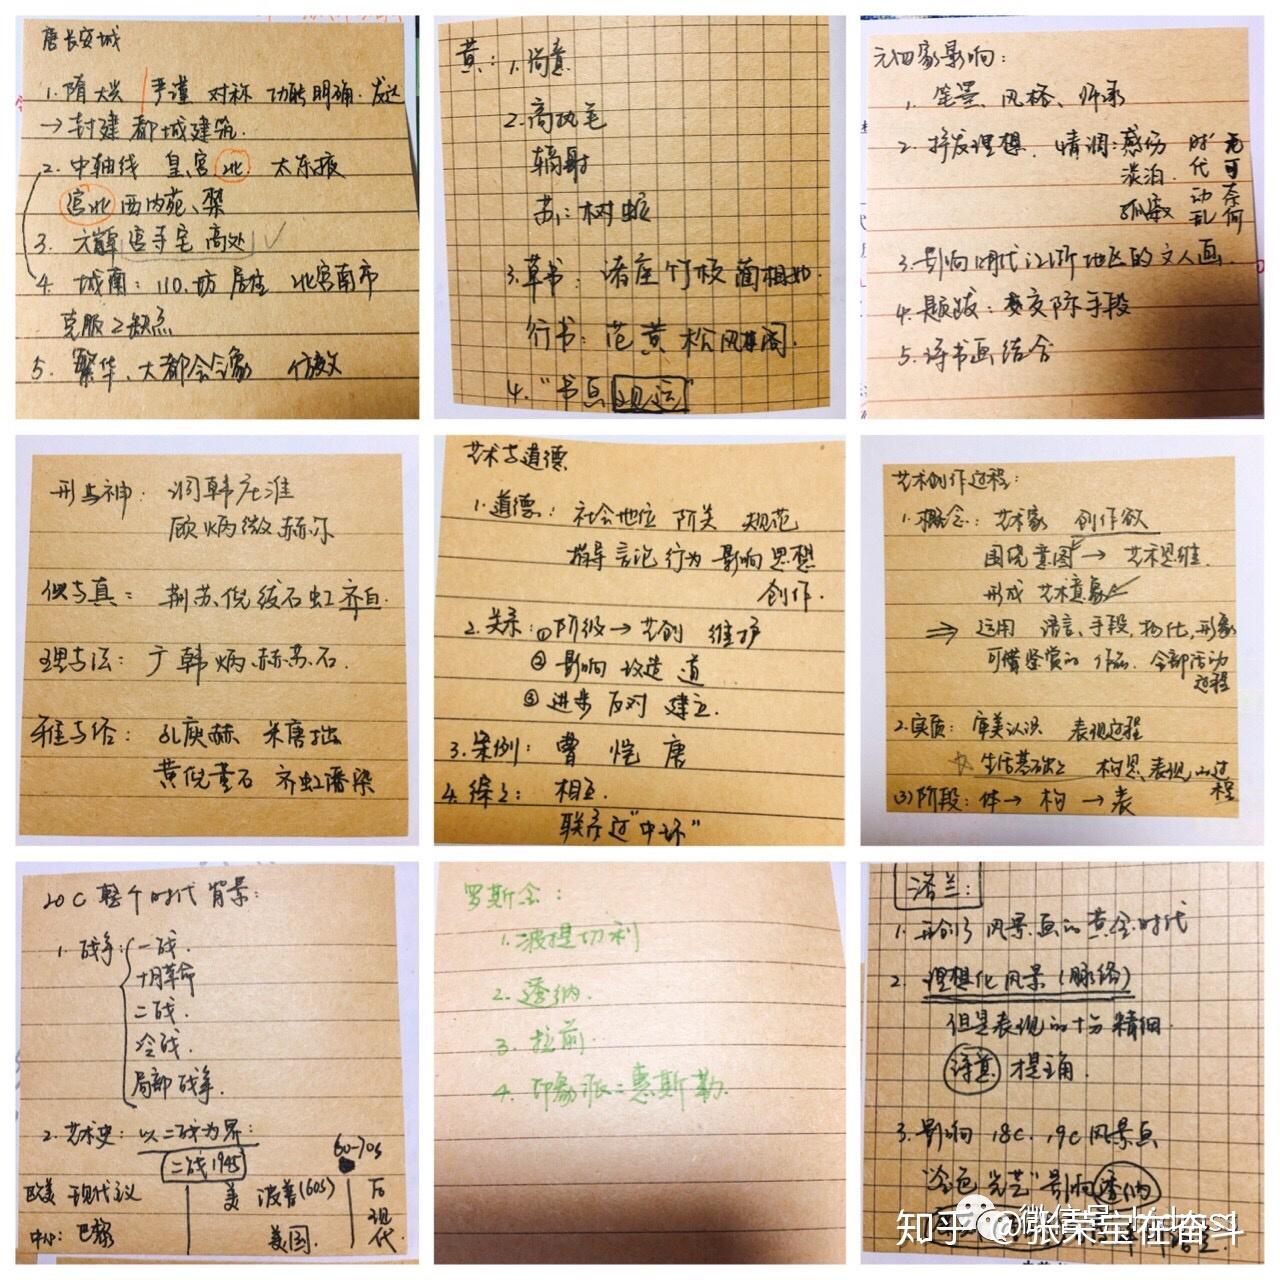 唐长安城
1. 隋大兴 严谨 对称 功能明确 发达
→封建都城建筑.
2. 中轴线 皇宫 北 太东掖
宫北 西内苑、禁
3. 六 宫寺宅 高处 ✓
4. 城南: 110.坊 居住 北宫南市
克服之缺点
5. 繁华、大都会气象 仿效
黄: 1. 尚意
2. 高执笔
辐射
苏: 树蛇
3. 草书: 诸座竹板 蔺相如.
行书: 范黄 松风阁.
4. "书 "
元四家影响:
1. 笔墨、风格、师承
2. 抒发理想. 情调: 感伤
淡泊.
孤寂
时代动乱
无可奈何
3. 影响明代江浙地区的文人画.
4. 题跋: 变交际手段
5. 诗书画结合
形与神: 洞韩庄淮
顾炳微赫尔
似与真: 荆苏倪 石虹齐白
理与法: 广韩炳赫苏石.
雅与俗: 孔庾赫 米唐拙
黄倪董石 齐虹潘染
艺术与道德
1. 道德: 社会地位 阶关 规范
指导言论行为 影响思想
创作.
2. 关系: ①阶级→艺创 维护
② 影响 改造 道
③ 进步 反对 建立.
3. 案例: 曹 恺 唐
4. 综上: 相互.
联系过"中环"
艺术创作过程:
1. 概念: 艺术家 创作欲
围绕意图→艺术思维.
形成 艺术意象
⇒ 运用 语言、手段, 物化, 形象
可供鉴赏的 作品. 全部活动
过程
2. 实质: 审美认识 表现过程
☆ 生活基础上 构思、表现 过程
(3) 阶段: 体→ 构 → 表
20C 整个时代背景:
1. 战争: 一战.
十月革命
二战.
冷战.
局部战争.
2. 艺术史: 以二战为界:
二战1945
60-70s
欧美 现代主义
美 波普(60s)
后现代
中心: 巴黎
美国.
罗斯金:
1. 波提切利
2. 透纳.
3. 拉前.
4. 印象派: 惠斯勒.
洛兰:
1. 开创了风景画的黄金时代
2. 理想化风景(脉络)
但是表现的十分精细.
诗意 才是主角.
3. 影响 18c. 19c风景画
"金色光芒" 影响透纳
知乎 @张荣宝在奋斗